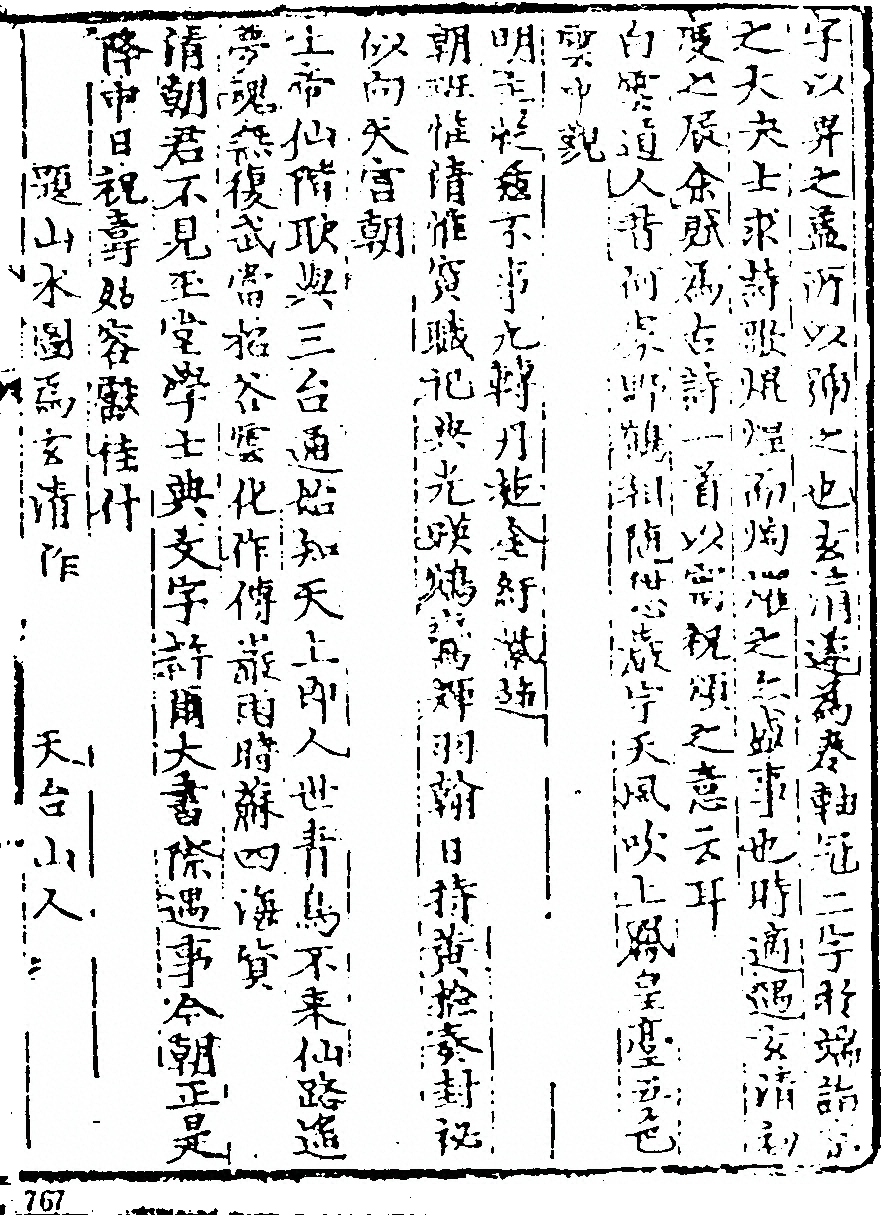 字以畀之蓋所以彌之也玄清遂爲卷軸冠二字於端詣京
之大夫士求詩歌焜煌而炳燿之亦盛事也時適遇玄清初
度之辰余賦爲古詩一首以寓祝頌之意云耳
白雲道人昔何處野鶴相隨天風吹上鬱皇臺五色
雲中觀
明主不事九轉丹 金紆紫
朝班惟清惟寅職祀典光映鵷鸞輝羽翰日持黃 奏封祕
似向天宮朝
上帝仙階耿與三台通始知天上卽人世青鳥不来仙路遙
夢魂無復武當招谷雲化作傅巖雨時蘇四海質
清朝君不見玉堂學士典文字許爾大書際遇事今朝正是
降申日祝壽 容獻佳什
題山水圖爲玄清作 天台山人
767